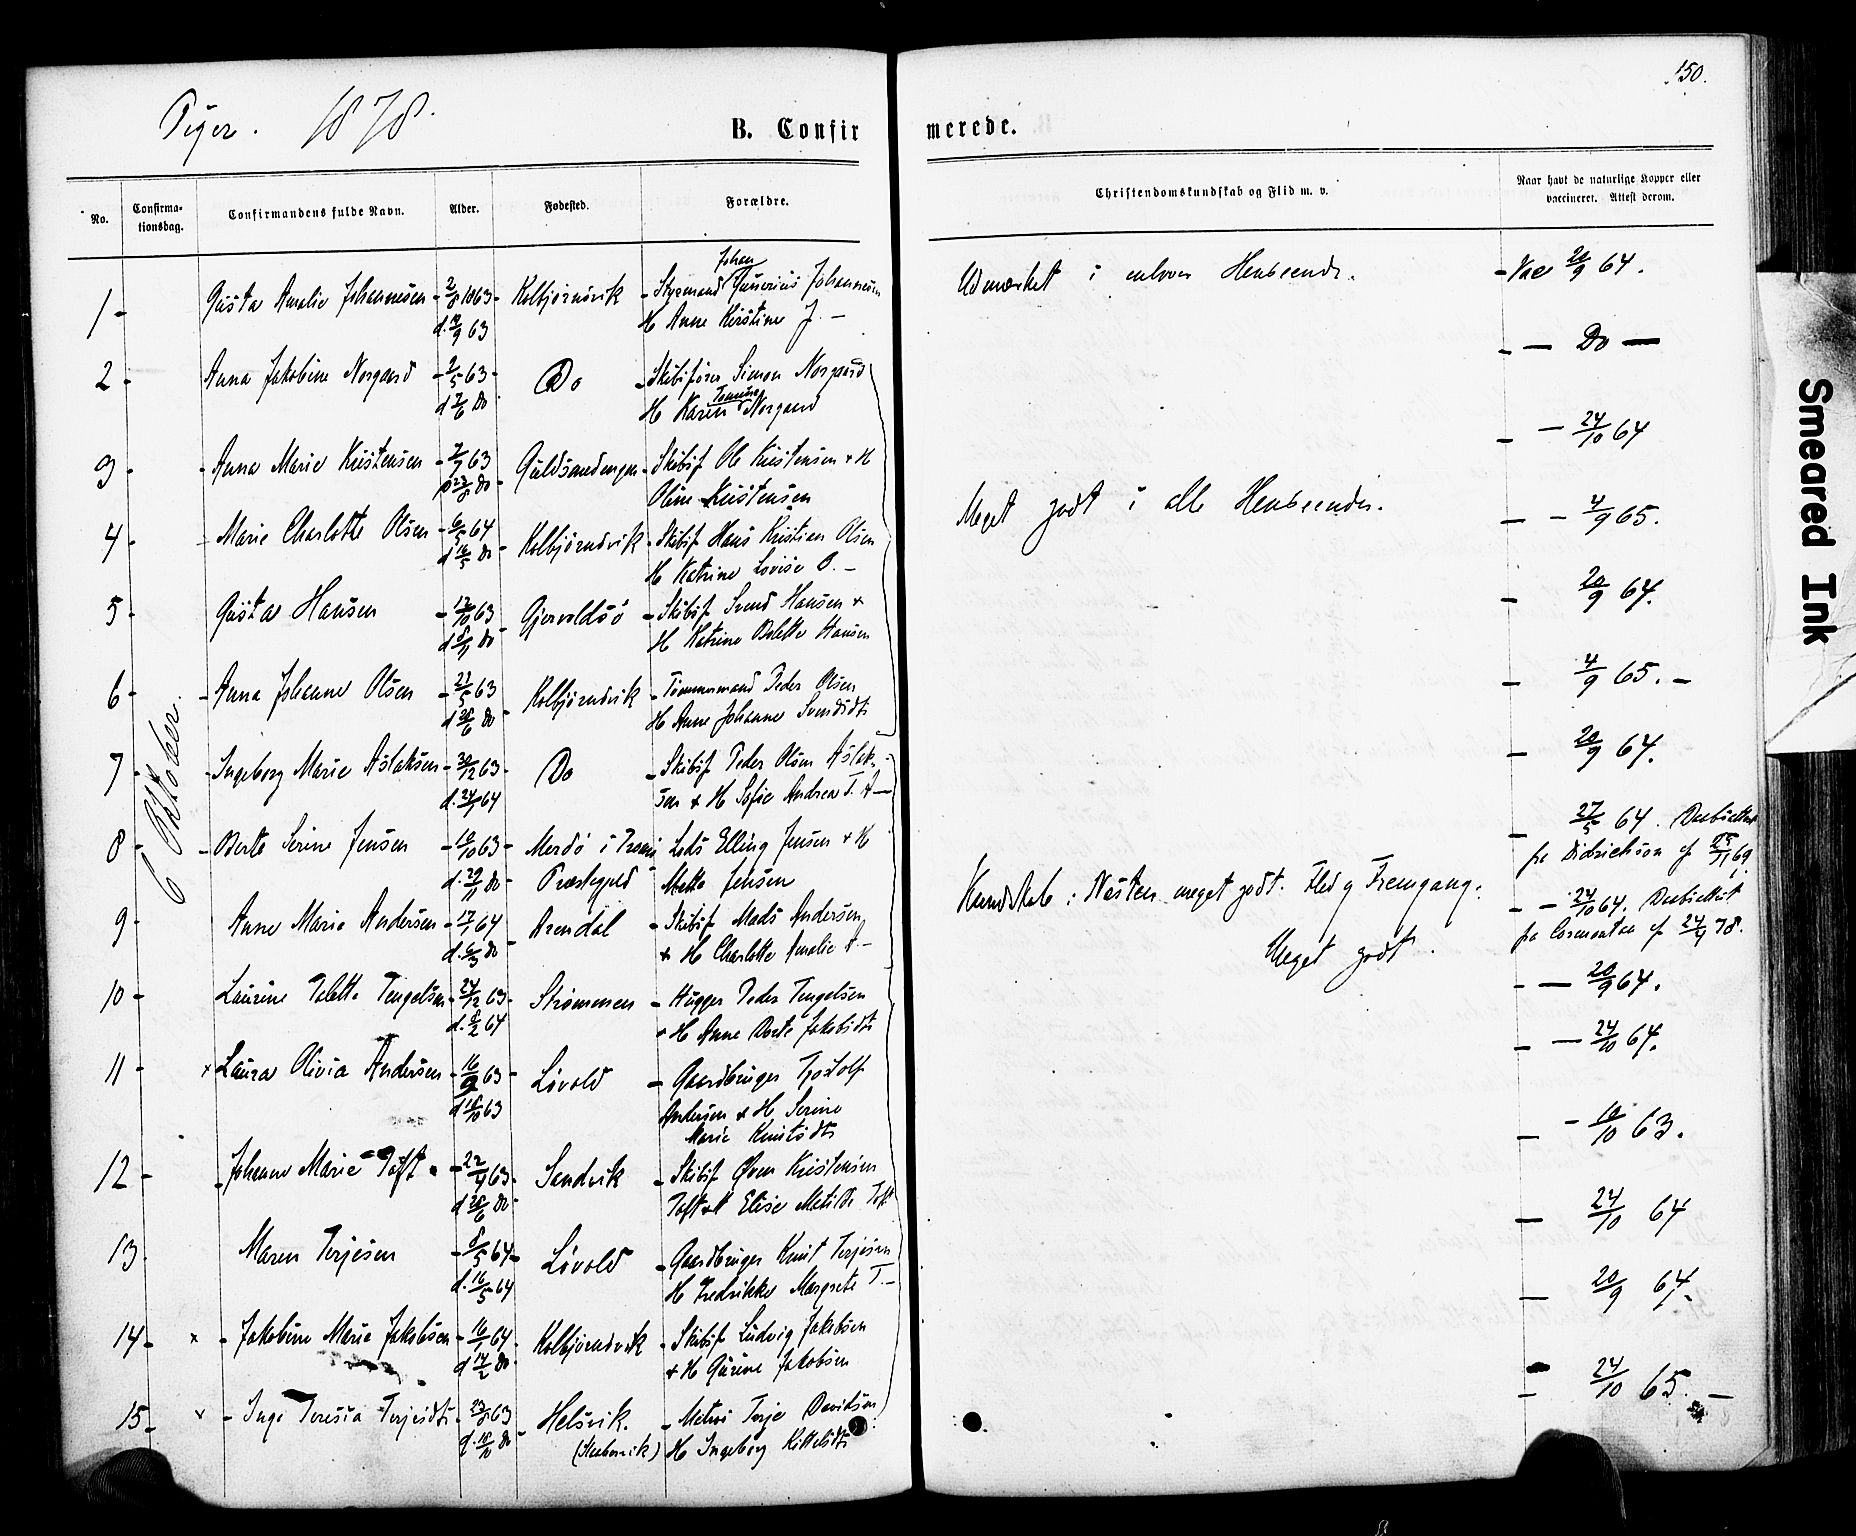 150.
Piger. 1878.
B. Confirmerede.
No.
Confirmationsdag.
Confirmandens fulde Navn.
Alder.
Fødested.
Forældre.
Christendomskundskab og Flid m. v.
Naar havt de naturlige Kopper eller vaccineret. Attest derom.
6 Oktober.
1 - Gusta Amalie Johannesen - 2/8 1863 - Kolbjørnsvik - Styrmand Johan Gunerius Johannesen
d. 9 63 H Anne Kirstine J. -
Udmærket i enhver Henseende. - Vac 20/9 64.
2 - Anna Jakobine Norgaard - 2/5 63 - Do - Skibsfører Simon Norgaard
d 7/6 Do H Karen Tomine Norgaard
- Do -
3 - Anna Marie Kristensen - 7/7 63 Guldsmedengen - Skibsf Ole Kristensen + H
23/8 Do Oline Kristensen
- 24/10 64
4 - Marie Charlotte Olsen - 6/5 64 - Kolbjørnsvik - Skibsf Hans Kristian Olsen
d 16/5 Do H Katrine Lovise O. -
Meget godt i alle Henseender. - 4/9 65.
5 - Gusta Hansen - 12/10 63 - Gjervoldsø - Skibsf Svend Hansen +
d 8/11 Do H Katrine Bolette Hansen
- 20/9 64.
6 - Anna Johanne Olsen - 21/5 63 - Kolbjørnsvik - Tømmermand Peder Olsen
d 28/6 Do H Anne Johanne Svendsdt
- 4/9 65. -
7 - Ingeborg Marie Aslaksen - 30/12 63 - Do - Skibsf Peder Olsen Aslak-
d. 24/1 64 sen + H Sofie Andrea T. A -
- 20/9 64.
8 - Berte Serine Jensen - 10/10 63 - Merdø i Tromø - Lods Elling Jensen + H
d. 29/11 Do - Præstegjeld Mette Jensen
- 27/5 64.
fra Didrichson af 25/11 69.
9 - Anne Marie Andersen - 17/1 64 - Arendal - Skibsf Mads Andersen
d. 6/3 Do + H Charlotte Amalie A. -
Kundskab: Næsten meget godt. Flid og Fremgang:
Meget godt.
- 24/10 64.
af 24/4 78.
10 - Laurine Tolette Tengelsen - 24/12 63 - Strømmen - Hugger Peder Tengelsen
d. 8/2 64 + H Anne Dorte Jakobsdt
- 20/9 64.
11 - x Laura Olivia Andersen - 16/9 63 - Løvold - Gaardbruger Tjostolf
d 18/10 63 Andersen + H Serine
Marie Knutsdt
- 24/10 64.
12 - Johanne Marie Toft - 22/4 63 - Sandvik - Skibsf Øven Kristensen
d 28/6 Do - Toft + H Elise Matilde Toft
- 10/10 63.
13. Maren Terjesen - 8/5 64 - Løvold - Gaardbruger Knut Terjesen
d. 16/5 64 H Fredrikke Margrete T. -
- 24/10 64
14 - x - Jakobine Marie Jakobsen - 16/1 64 - Kolbjørnsvik - Skibsf Ludvig Jakobsen
d 14/2 Do + H Gurine Jakobsen
- 20/9 64.
15 - x - Inge Teresia Terjesdt - 23/8 63 - Helsvik. - Matros Terje Davidsen
d. 18/10 Do H Ingeborg Kittelsdt
- 24/10 65. -
Smeared Ink